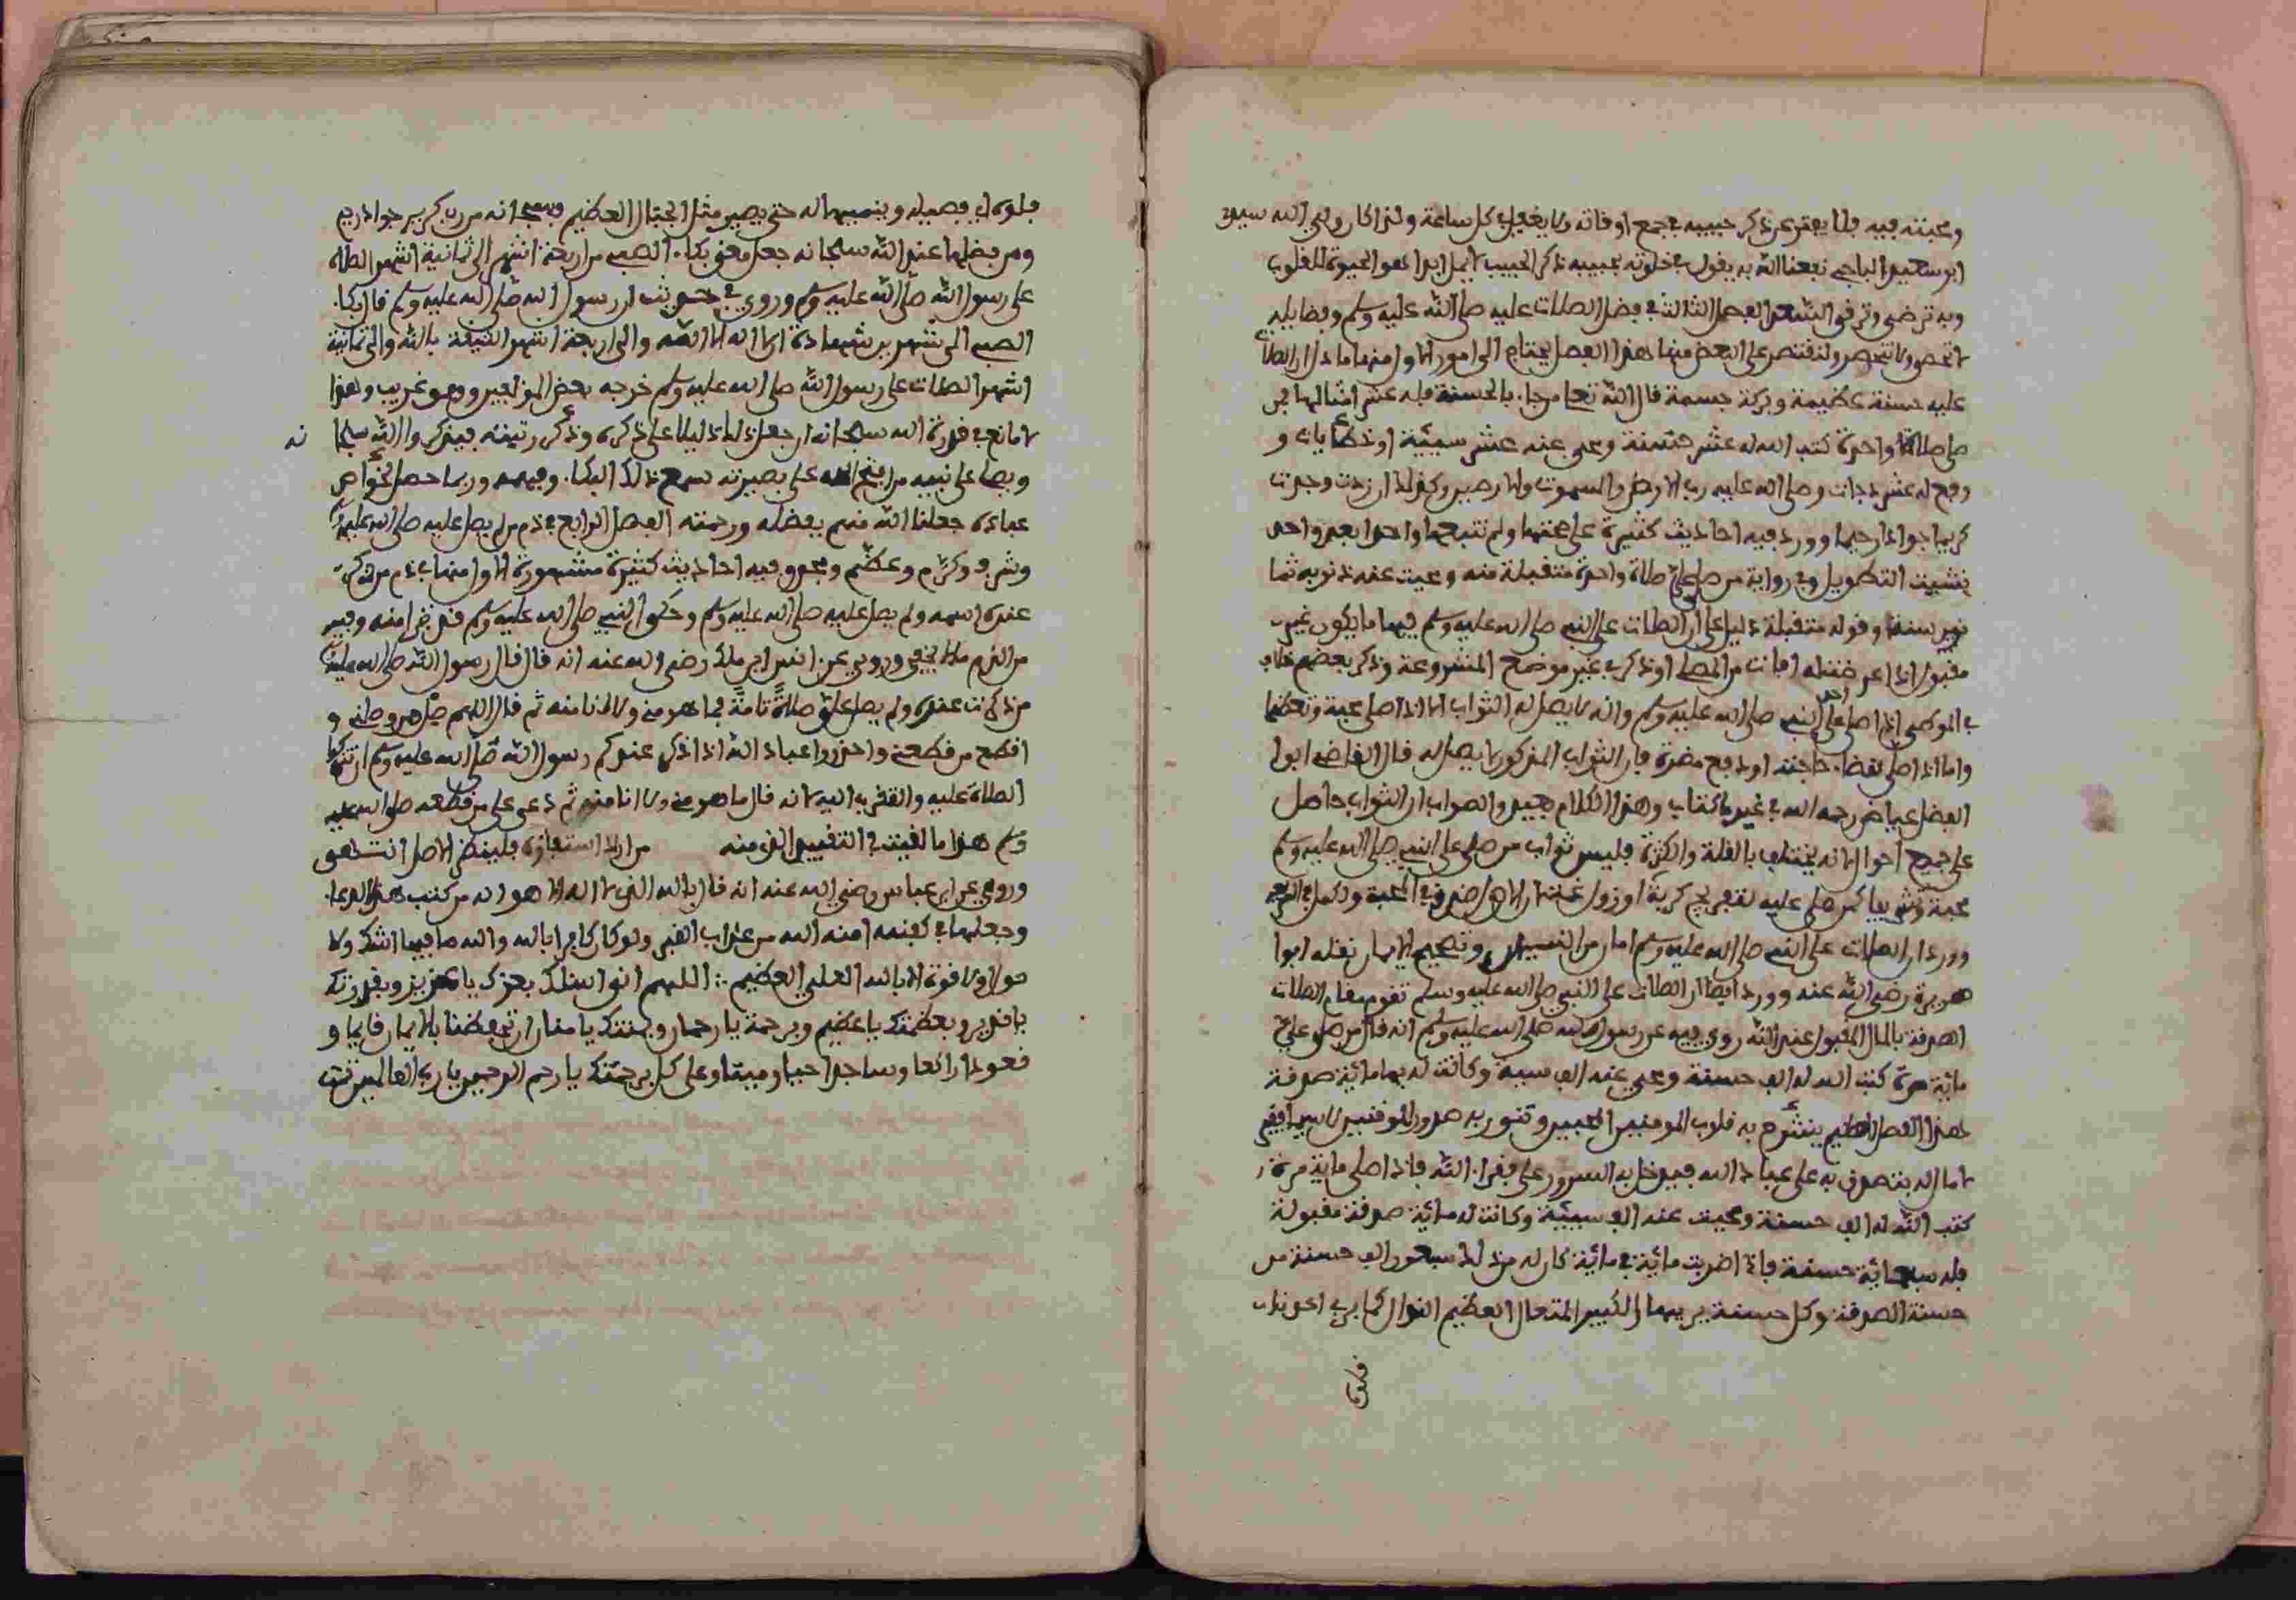 ومحبته فيه فلا يفتر عن ذكر حبيبه في جمع اوقاته ولا يغفل في كل ساعة ولذا كان ولي الله سيدي
ابو سعيد الباجي نفعنا الله به يقول في خلوته بحبيبه ذكر الحبيب لا يمل ابدا وهو الحيوة للقلوب
وبه ترضى وترقى الفصل الثالث في فضل الصلات عليه صلى الله عليه وسلم وفضايله
لا تحصى ولا تنحصر ولنقتصر على البعض منها وهذا الفصل يحتاج الى امور الاول منها ما دل ان الصلاة
عليه حسنة عظيمة وبركة جسمة قال الله تعلى من جاء بالحسنة فله عشر امثالها فمن
صلى صلاة واحدة كتب الله له عشر حسنة ومحى عنه عشر سيئة او خطايات و
رفع له عشر درجات وصلى الله عليه رب الارض والسموت والارضين وكيف لا ان زدت وجدت
كريما جوادا رحيما وورد فيه احاديث كثيرة على صحتها ولم نتبعها واحدا بعد واحد
خشيت التطويل وفي رواية من صلى علي صلاة واحدة متقبلة منه ومحيت عنه ذنوبه ثما
نين سنة وقوله متقبلة دليل على ان الصلات على النبي صلى الله عليه وسلم فيها ما يكون غير
مقبول اذا عرضت له افات من المصلي او ذكر في غير موضع المشروعة وذكر بعضهم خلاف
في الموصي اذا صلى على النبي صلى الله عليه وسلم وانه لا يصل له الثواب الا اذا صلى محبة وتعظيما
واما اذا صلى لقضاء حاجته او دفع مضرة فان الثواب المذكور لا يصل له قال القاضي ابوا
الفضل عياض رحمه الله في غير ما كتاب وهذا الكلام جيد والصواب ان الثواب حاصل
على جميع احوال لانه يختلف بالقلة والكثرة فليس ثواب من صلى على النبي صلى الله عليه وسلم
محبة وتشريفا كمن صلى عليه لتفريج كربة او زوال
وورد ان الصلات على النبي صلى الله عليه وسلم امان من النسيان وتصحيح الايمان نقله ابوا
هريرة رضي الله عنه وورد ايضا ان الصلات على النبي صلى الله عليه وسلم تقوم مقام الصلات
الصدقة بالمال المقبول عند الله روي فيه عن رسول الله صلى الله عليه وسلم انه قال من صلى علي
مائية مرة كتب الله له الف حسنة ومحي عنه الف سية وكانت له بها مائية صدقة
هذا الفصل العظيم ينشرح به قلوب المومنين المحبين وتنور به صدور الموقنين لا سيما فقير
لا مال له يتصدق به على عباد الله فيدخل به السرور على فقراء الله فاذا صلى ماية مرة
كتب الله له الف حسنة ومحيت عنه الف سيئة وكانت له مائية صدقة مقبولة
فله سبعمائية حسنة فاذا ضربت مائية في مائية كان له من ذلك سبعون الف حسنة من
حسنة الصدقة وكل حسنة يربيها الكبير المتعال العظيم النوال كما يربي احدنا
فلوه
فلوه او فصيله وينميها له حتى يصير مثل الجبال العظيم وسبحانه من رب كريم جواد رحيم
ومن فضلها عند الله سبحانه جعل معنى بكاء الصبي من اربعة اشهر الى ثمانية اشهر الصلاة
على رسول الله صلى الله عليه وسلم وروي في حديث ان رسول الله صلى الله عليه وسلم قال بكاء
الصبي الى شهرين شهادة ان لا اله الا الله والى اربعة اشهر الثقة بالله والى ثمانية
اشهر الصلات على رسول الله صلى الله عليه وسلم خرجه بعض المولعين ووهو غريب وهذا
لا مانع في قدرة الله سبحانه ان جعل ذلك دليلا على ذكره وذكر رتبته فيذكروا الله سبحا نه
ويصلى على نبيه من افتح الله على بصيرته سمع ذلك البكاء وفهمه وربما حصل لخواص
عباده جعلنا الله منهم بفضله ورحمته الفصل الرابع في ذم من لم يصل عليه صلى الله عليه
وشرف وكرم وعظم ومجد وفيه احاديث كثيرة مشهورة الاول منها في ذم من ذكر
عنده اسمه ولم يصل عليه صلى الله عليه وسلم
من الذم ما لا يخفى وروي عن انس ابن ملك رضي الله عنه انه قال قال رسول الله صلى الله عليه
من ذكرت عنده ولم يصل علي صلاة تامة فما هو مني ولا انا منه ثم قال اللهم صل من وصلني و
اقطع من قطعني واحذروا عباد الله اذا ذكر عندكم رسول الله صلى الله عليه وسلم ان تتركوا
الصلاة عليه والتقرب اليه لانه قال ما هو مني ولا انا منه ثم دعى على من قطعه صلى الله عليه
وسلم هذا ما لقيت في التقييد الذي منه من اراد استجازه فلينظر الاصل انتهى
وروي عن ابن عباس رضي الله عنه انه قال بالله الذي لا اله الا هو انه من كتب هذا الدعاء
وجعلها في كفنه امنه الله من عذاب القبر ولو كان كافرا بالله والله ما فيها اشك ولا
حول ولا قوة الا بالله العلي العظيم ∴ اللهم اني اسئلك بعزك يا عزيز وبقدرتك
يا قدير وبعظمتك يا عظيم وبرحمة يا رحمان وبمنتك يا منان ان تحفظنا بالايمان قايما و
قعودا راكعا وساجدا حيا وميتا وعلى كل برحمتك يا رحم الرحمين يا رب العالمين تمت